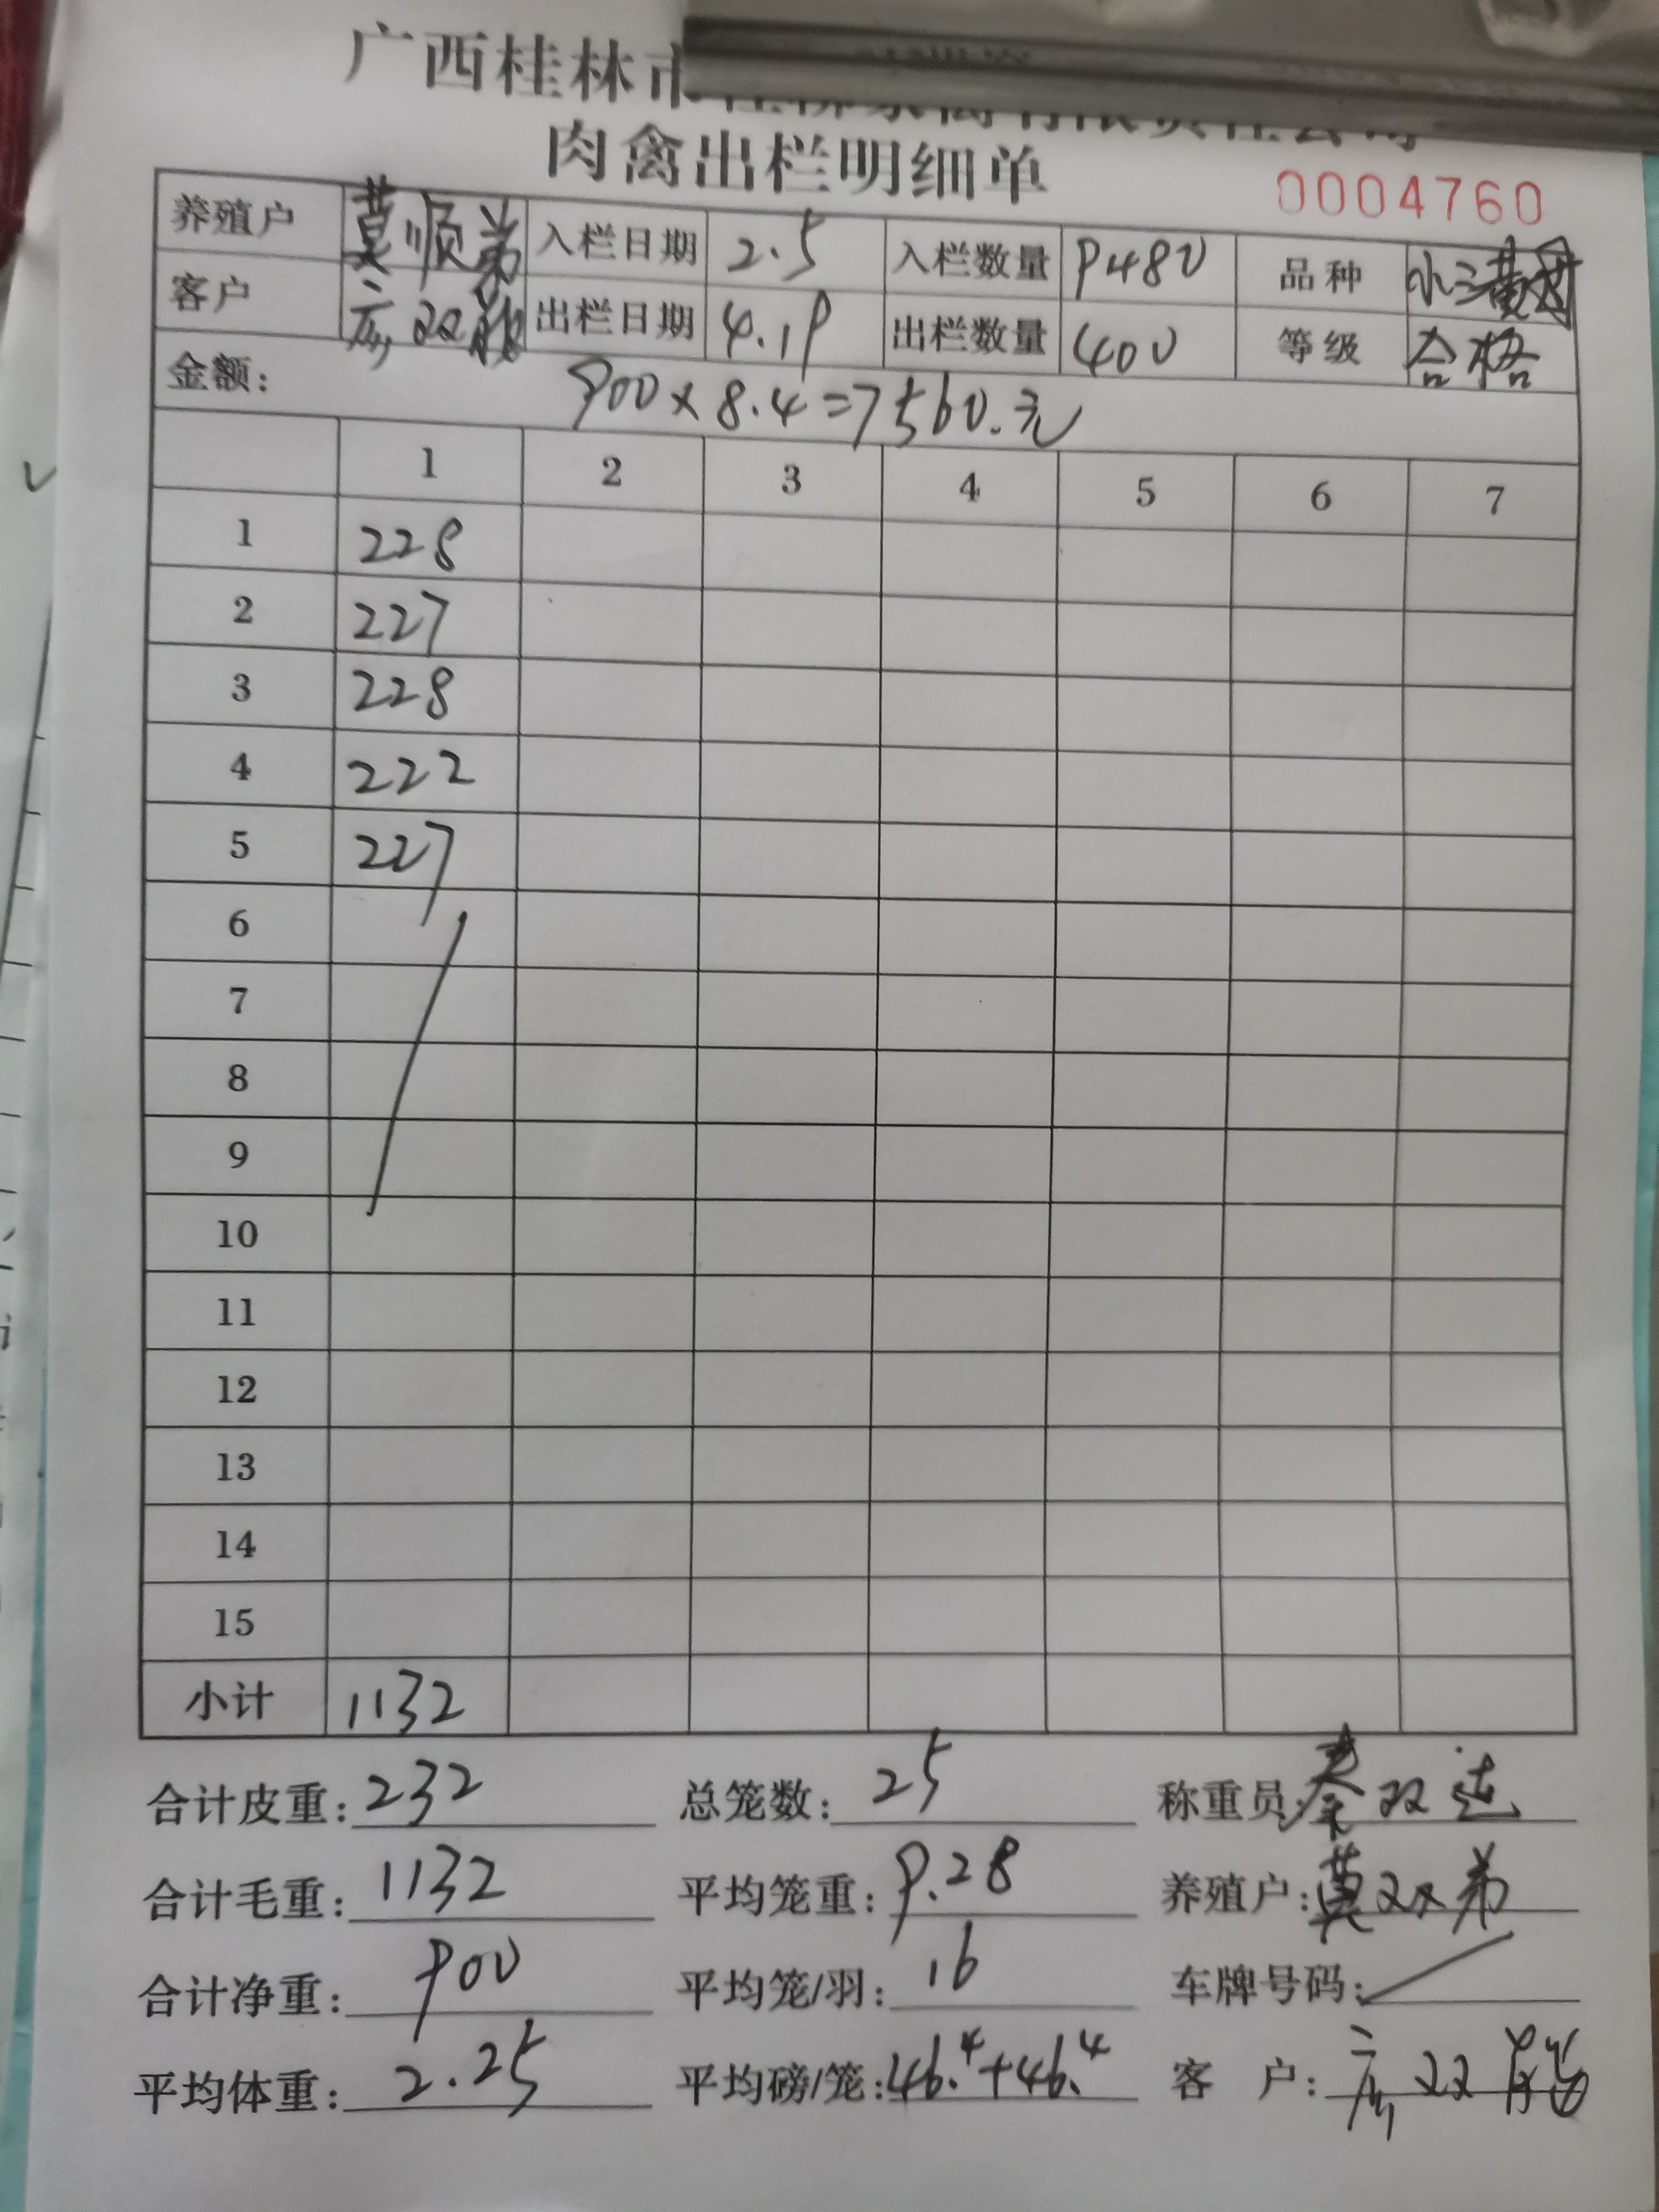 广西桂林市
肉禽出栏明细单
0004760
养殖户 莫顺弟 入栏日期 2.5 入栏数量 9480 品种 小三黄母
客户 出栏日期 4.19 出栏数量 400 等级 合格
金额: 900×8.4=7560.元
1 2 3 4 5 6 7
1 228
2 227
3 228
4 222
5 227
6
7
8
9
10
11
12
13
14
15
小计 1132
合计皮重: 232 总笼数: 25 称重员:
合计毛重: 1132 平均笼重: 9.28 养殖户: 莫双弟
合计净重: 900 平均笼/羽: 16 车牌号码:
平均体重: 2.25 平均磅/笼: 46.4+46.4 客 户: